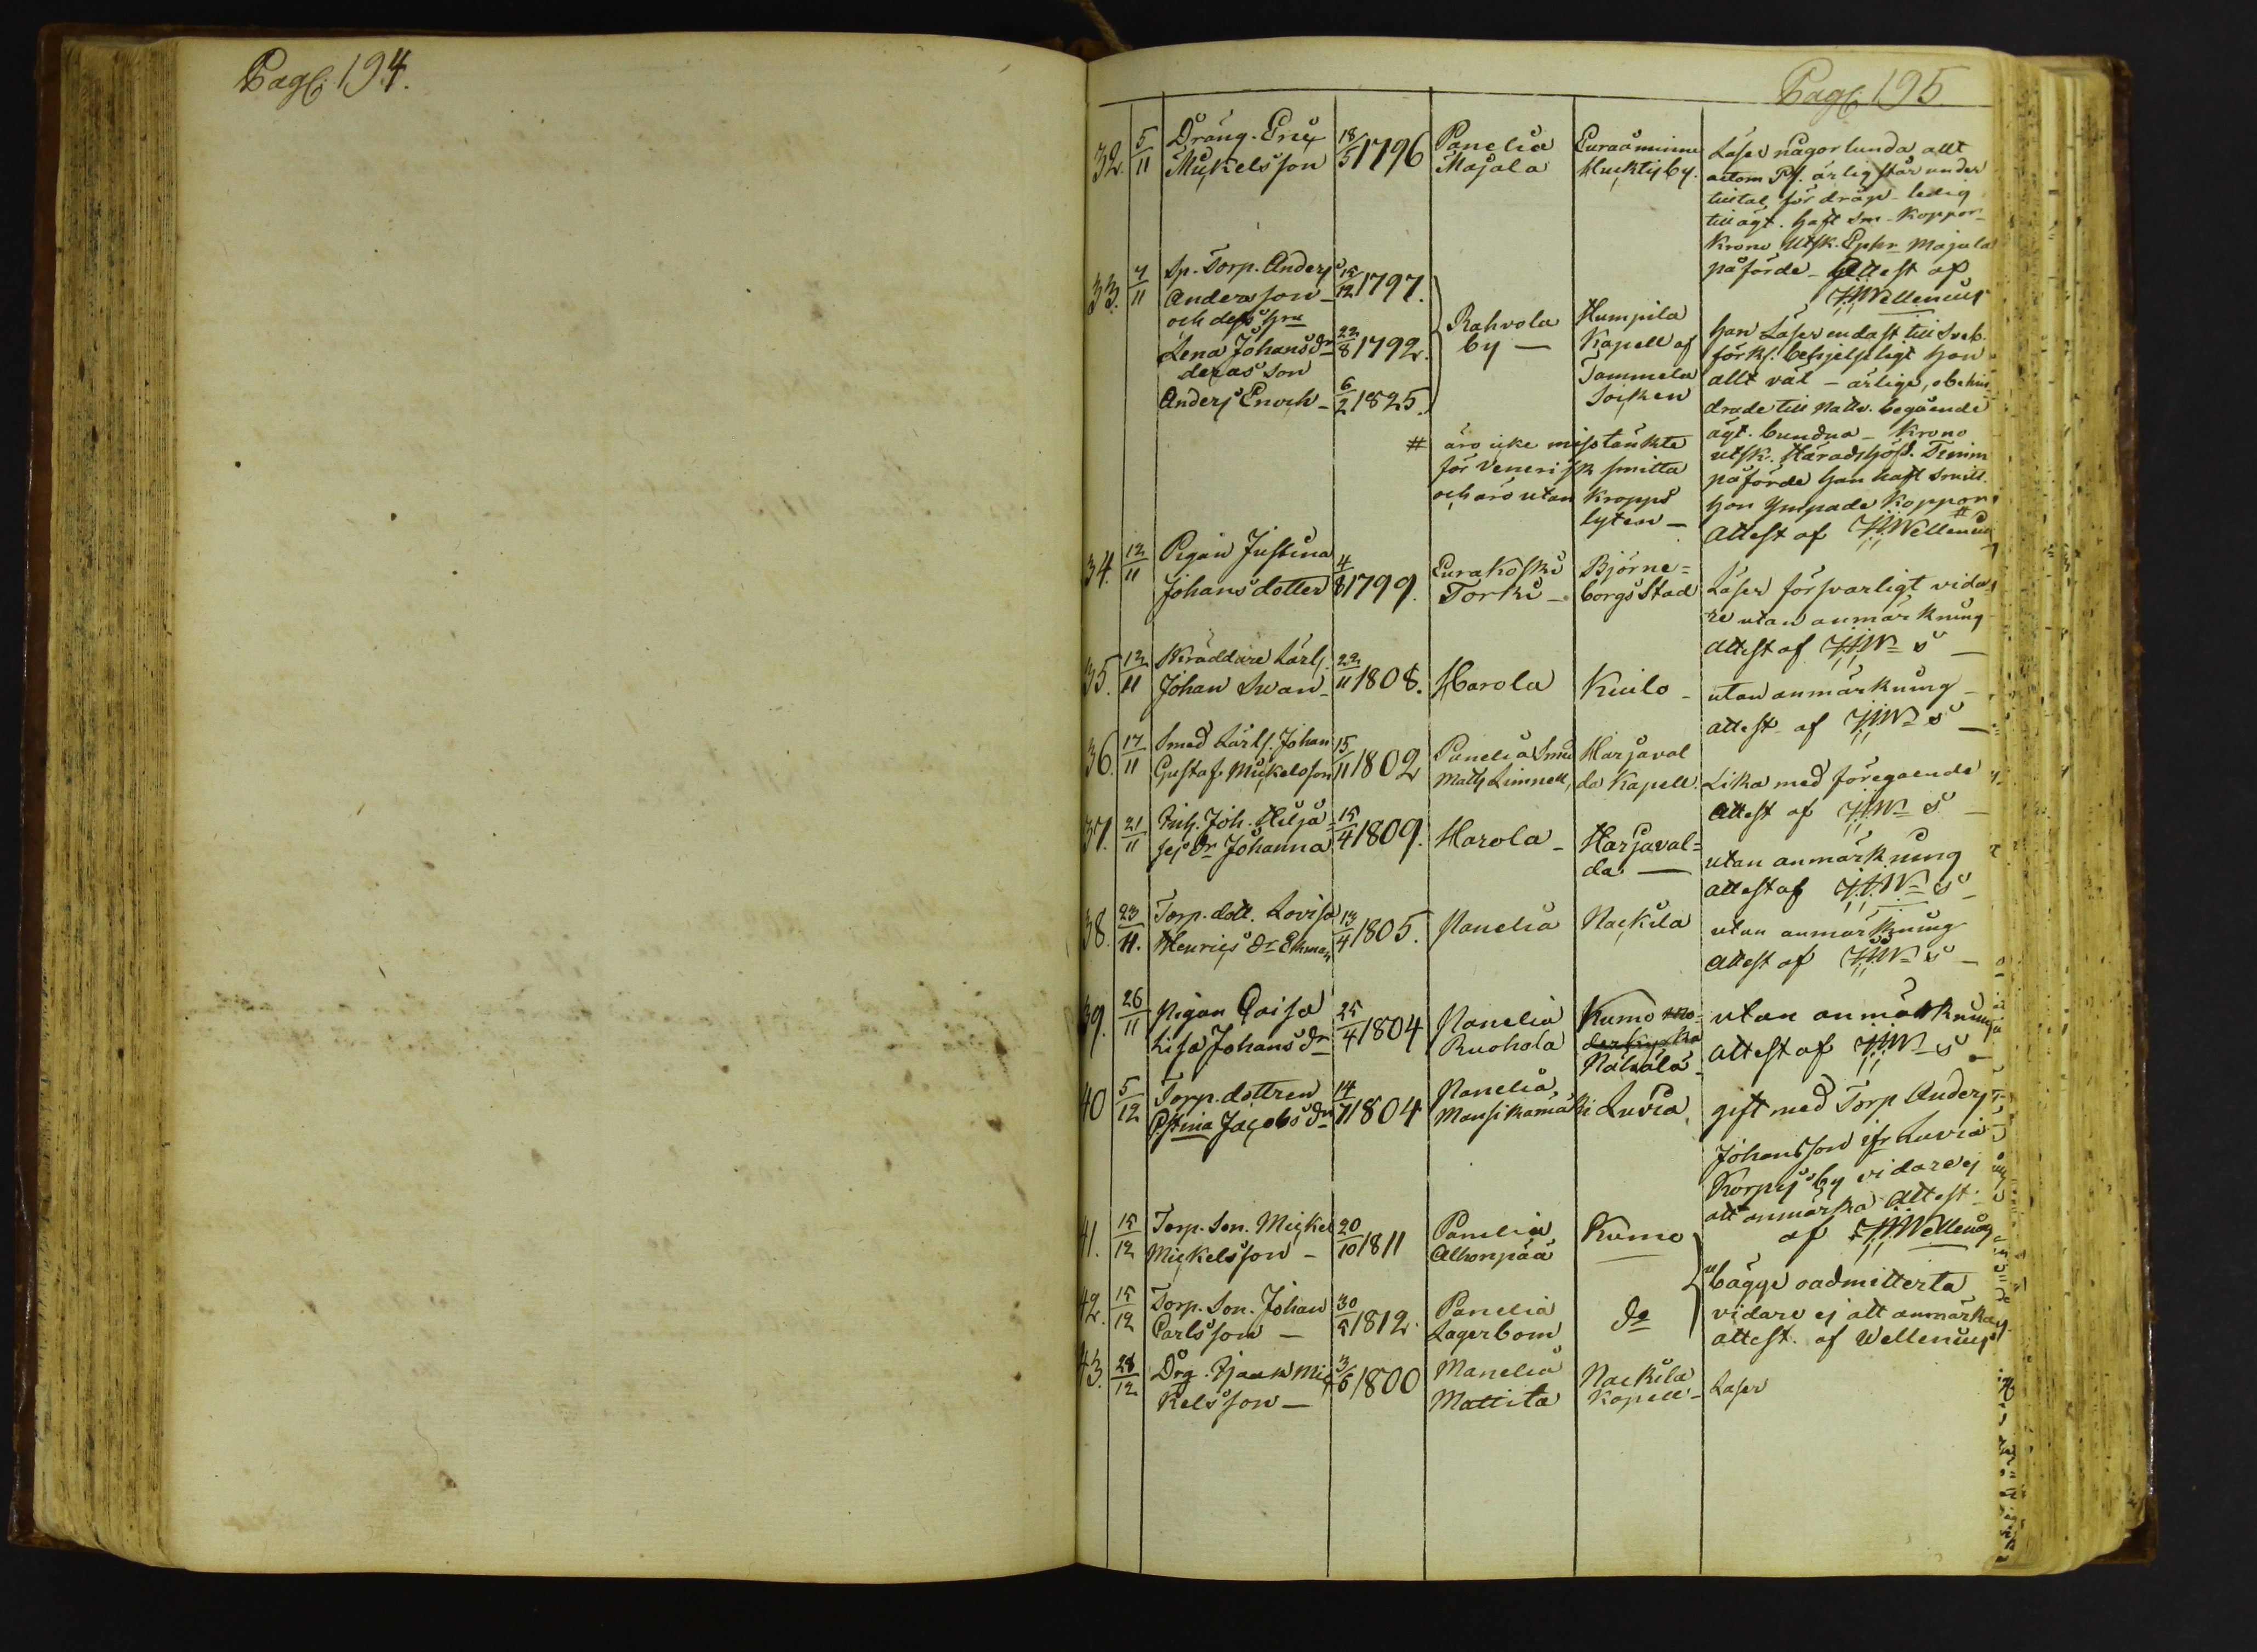 Pag: 194.
Pag: 195
32. 5/11 Dräng. Eric 18/5 1796 Panelia Euraåminne Läser någorlunda allt
Mickelsson Majala Hucktis by. utom Ps. ärlig står under
tilltal för dråp - ledig
till ägt. haft sm. Koppor
Krono Utsk. Ephr. Majala
påförde - Attest af
J.H.Wellenius
33. 7/11 Sp. Torp. Anders 15/12 1797.
Andersson -
och dess hu
Lena Johansdr 22/8 1792. Rahvola Humpila han Läser endast till Sveb.
deras Son by — Kapell af förkl. behjelpligt hon
Anders Enoch - 6/2 1825. Tammela allt väl - ärlige, obehin
Socken drade till Nattv. begående
# äro icke misstänkte ägt. bundna - Krono
för Venerisk smitta utsk. Häradshöfd.
och äro utan kropps påförde han haft
lyten - hon ympade Koppor #
Attest af J.H.Wellenius
34. 12/11 Pigan Justina 4/8 1799. Eurakoski Björne= Läser försvarligt vida
Johansdotter Torki - borgs Stad re utan anmärkning
attest af J.H.W-s —
35. 12/11 Skräddare Lärl. 22/11 1808. Harola Kiulo - utan anmärkning -
Johan Swan - attest af J.H.W-s —
36. 17/11 Smed Lärl. Johan 15/11 1802 Panelia Smed Harjaval
Gustaf Mickelsson Math Limnell, da Kapell. Lika med föregående
Attest af J.H.W-s —
37. 21/11 Joh. Hilja 15/4 1809. Harola - Harjaval= utan anmärkning
dr Johanna da — attest af J.H.W-s -
38. 23/11. Torp. dott. Lovisa 13/4 1805. Panelia Nackila utan anmärkning
Henrics dr Ekman attest af J.H.W-s —
39. 26/11 Pigan Caisa 25/4 1804 Panelia Kumo mo- utan anmärkning
Lisa Johansdr Ruohola derkyrka attest af J.H.W-s -
40 5/12 Torp. dottren 14/7 1804 Panelia
Stina Jacobsdr Mansikamäki Luvia gift med Torp Anders
Johansson ifr. Luvia
Korpis by vidare ej
att anmärka Attest
41. 15/12 Torp. Son. Mickel 20/10 1811 Panelia Kumo af J.H.Wellenius
Mickelsson - Alhonpää
bägge oadmitterta
42. 15/12 Torp. Son. Johan 30/5 1812. Panelia do vidare ej att anmärka
Carlsson — Lagerbom attest. af Wellenius
43. 28/12 Drg. Isaak Mic 3/6 1800 Panelia Nackila Läser
kelsson — Mattila Kapell -